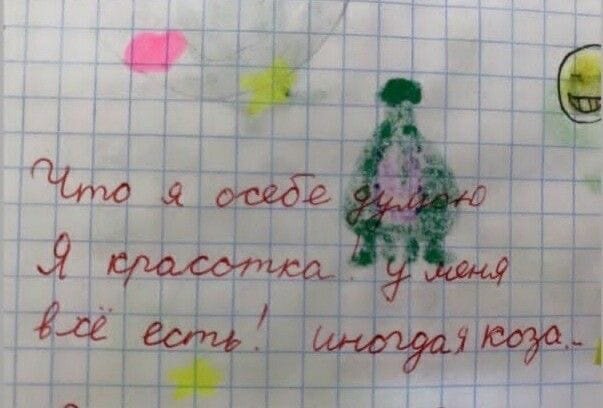 Что я осебе думаю
Я красотка! у меня
всё есть! иногда я коза..